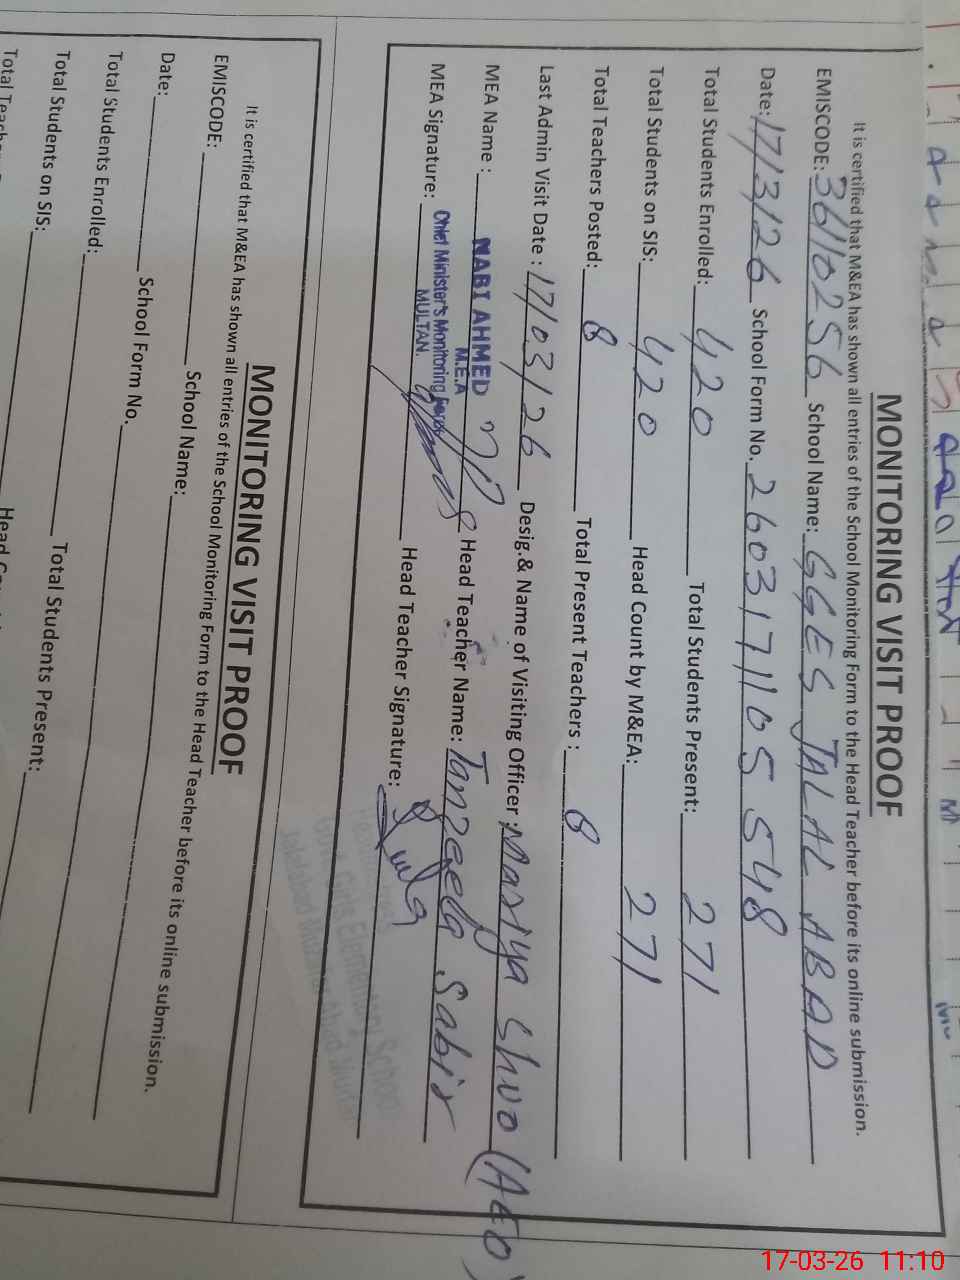 MONITORING VISIT PROOF
It is certified that M&EA has shown all entries of the School Monitoring Form to the Head Teacher before its online submission.
EMISCODE: 36110256 School Name: GGES JALAL ABAD
Date: 17/3/26 School Form No. 2603171105548
Total Students Enrolled: 420 Total Students Present: 271
Total Students on SIS: 420 Head Count by M&EA: 271
Total Teachers Posted: 8 Total Present Teachers : 8
Last Admin Visit Date : 17/03/26 Desig.& Name of Visiting Officer : (AEO)
MEA Name : NABI AHMED Head Teacher Name: Tanzeela Sabir
M.E.A
Chief Minister's Monitoring Force
MULTAN.
MEA Signature: Head Teacher Signature:
Girls Elementary School
MONITORING VISIT PROOF
It is certified that M&EA has shown all entries of the School Monitoring Form to the Head Teacher before its online submission.
EMISCODE: School Name:
Date: School Form No.
Total Students Enrolled:
Total Students on SIS: Total Students Present:
17-03-26 11:10